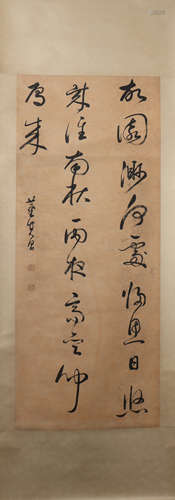 故園渺何處歸思日悠
哉淮南秋雨夜高齋聞
雁來
董其昌